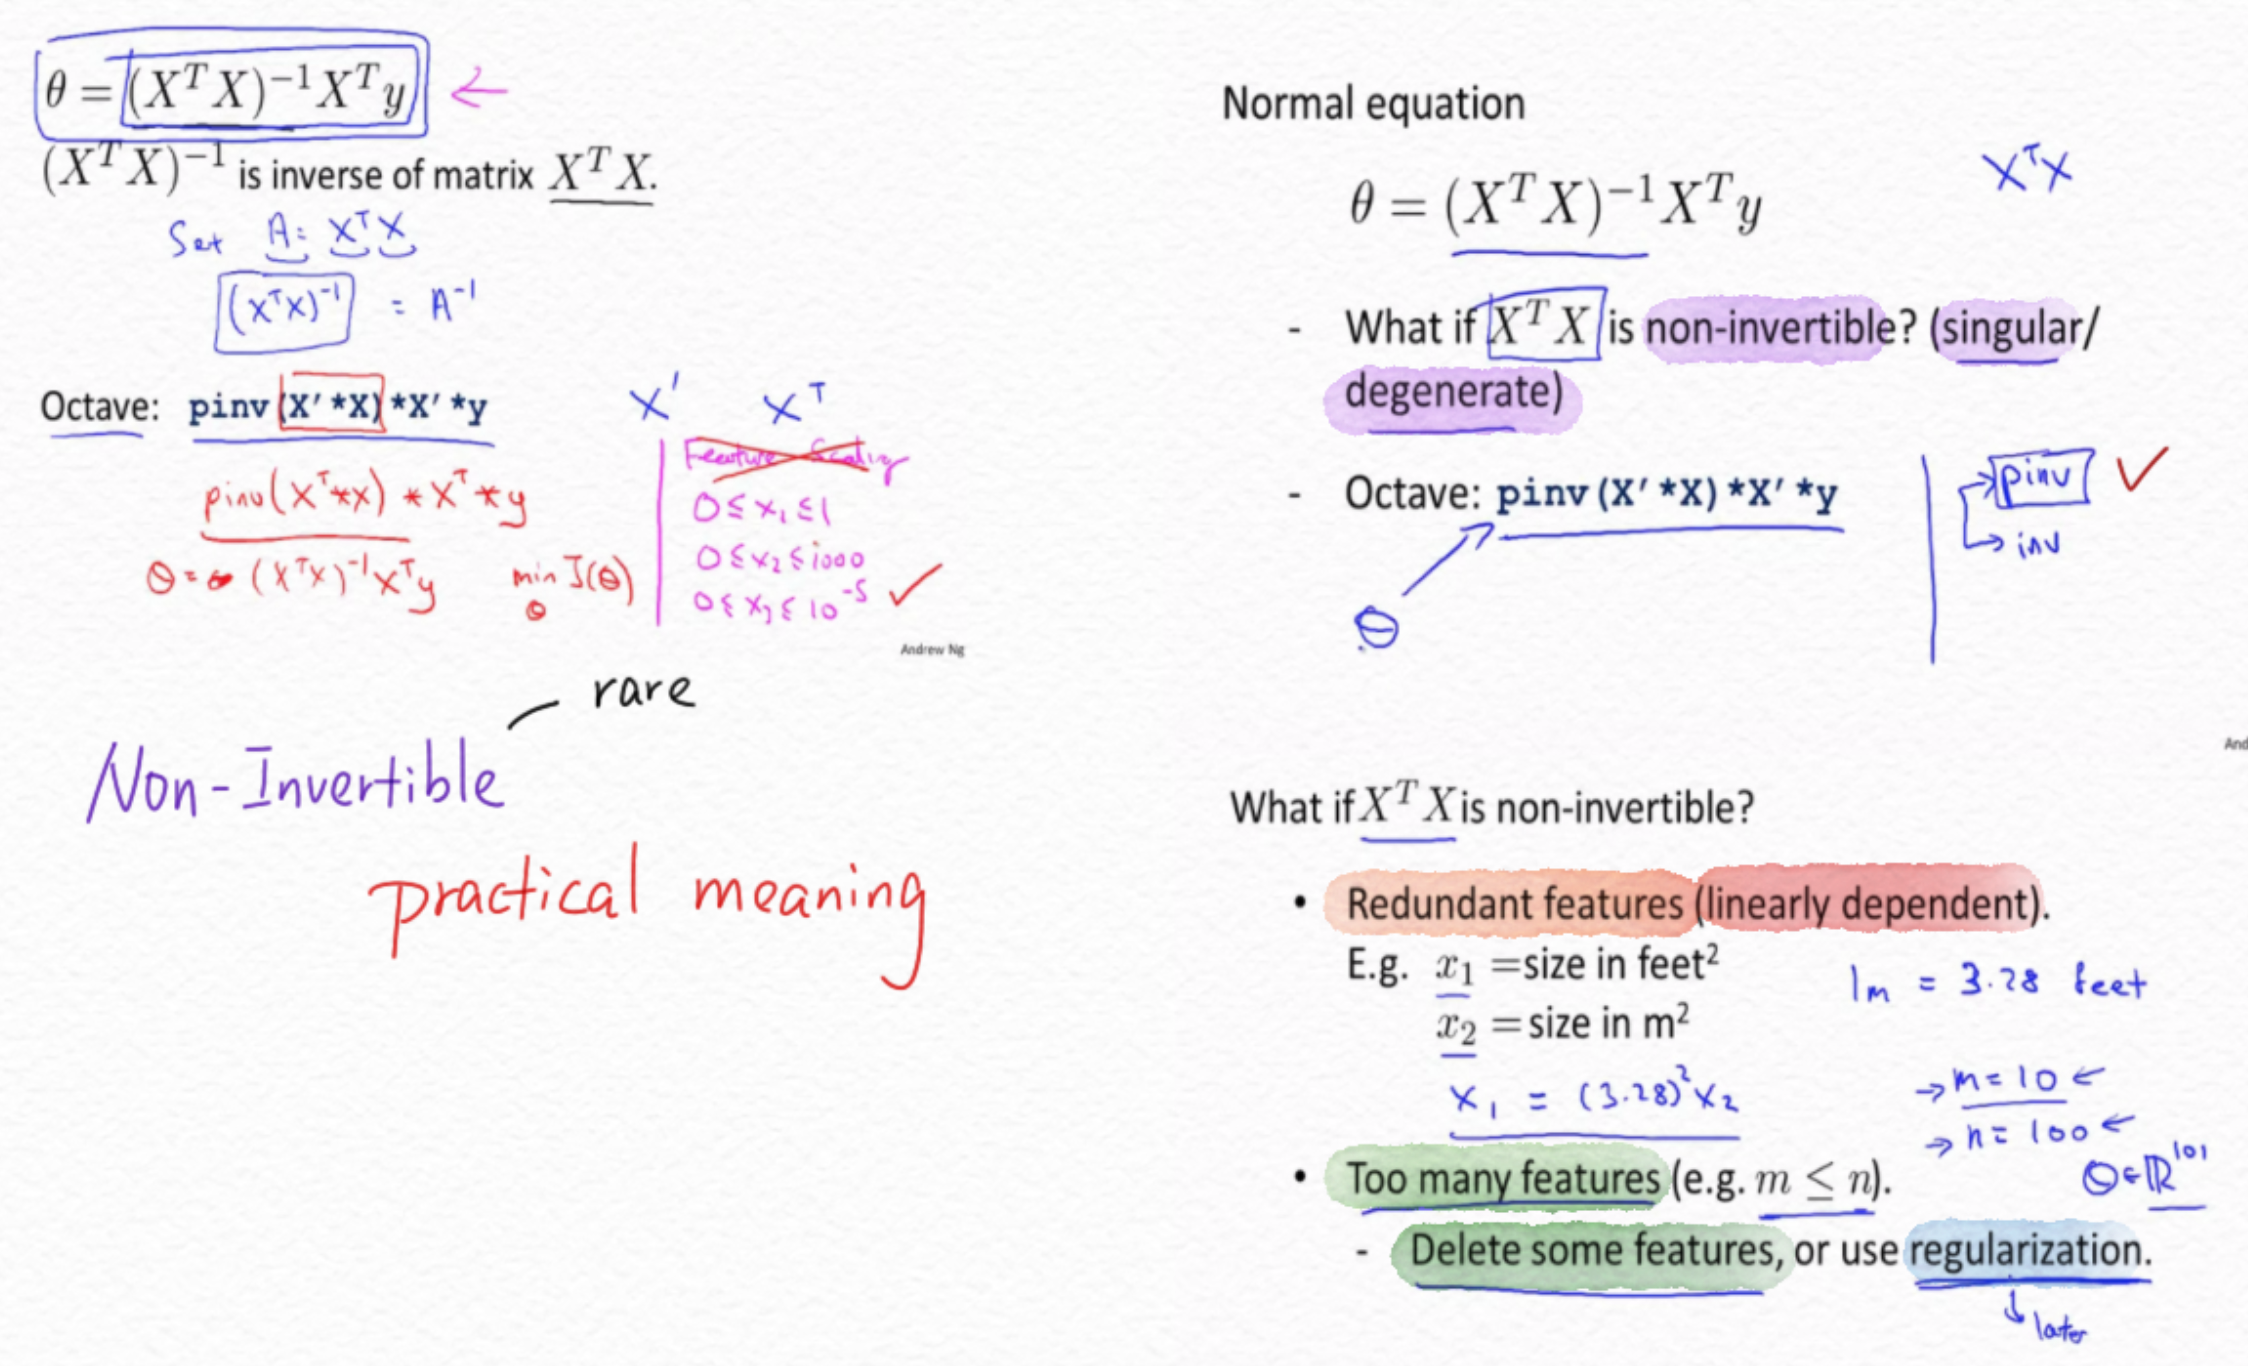 θ = (XᵀX)⁻¹Xᵀy ←
(XᵀX)⁻¹ is inverse of matrix XᵀX.
Set A = XᵀX
(XᵀX)⁻¹ = A⁻¹
Octave: pinv(X'*X)*X'*y
X' Xᵀ
pinv(Xᵀ*X)*Xᵀ*y
θ = (XᵀX)⁻¹Xᵀy
min J(θ)
θ
Feature Scaling
0 ≤ x₁ ≤ 1
0 ≤ x₂ ≤ 1000
0 ≤ x₃ ≤ 10⁻⁵ ✓
Andrew Ng
rare
Non-Invertible
practical meaning
Normal equation
θ = (XᵀX)⁻¹Xᵀy
XᵀX
- What if XᵀX is non-invertible? (singular/
degenerate)
- Octave: pinv(X'*X)*X'*y
θ
→ pinv ✓
→ inv
And
What if XᵀX is non-invertible?
• Redundant features (linearly dependent).
E.g. x₁ =size in feet²
x₂ =size in m²
1m = 3.28 feet
x₁ = (3.28)²x₂
→ m = 10 ←
→ n = 100 ←
θ ∈ ℝ¹⁰¹
• Too many features (e.g. m ≤ n).
- Delete some features, or use regularization.
↓ later